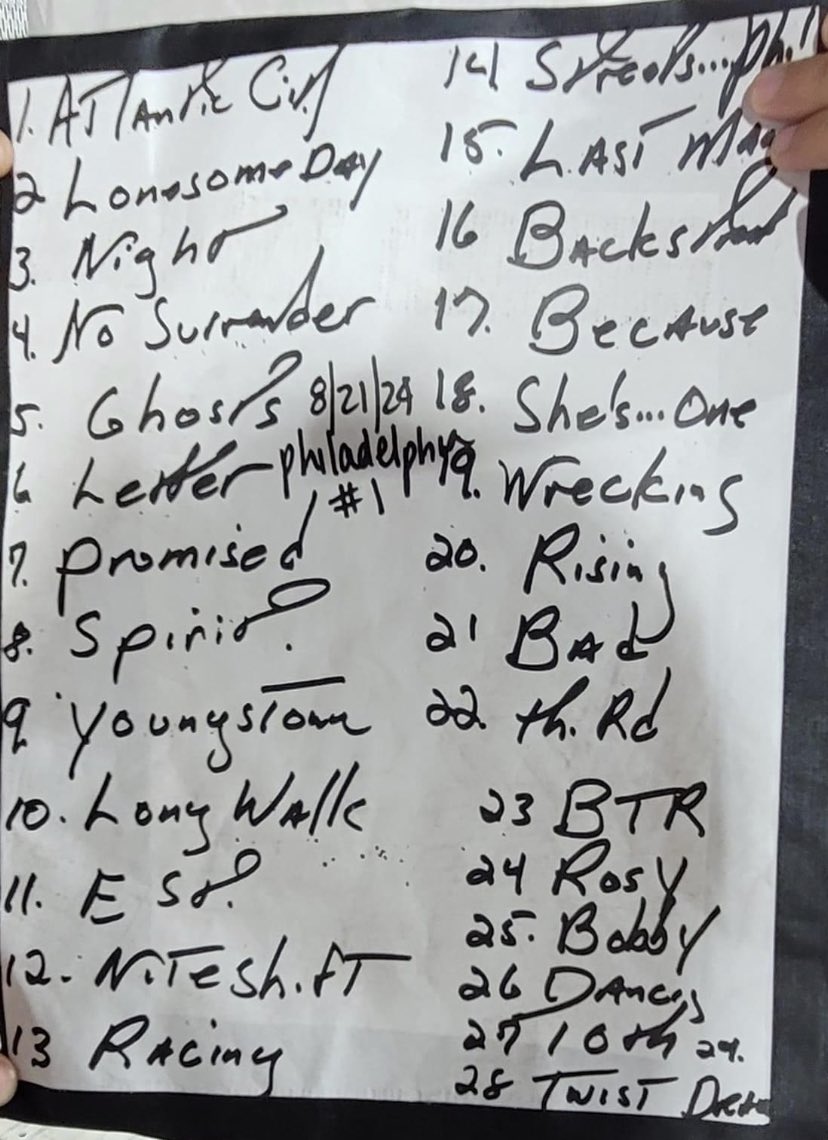 1. Atlantic City
2 Lonesome Day
3. Night
4. No Surrender
5. Ghosts
6 Letter
7. Promised
8. Spirit
9 Youngstown
10. Long Walk
11. E St.
12. Niteshift
13 Racing
8/21/24
philadelphia
#1
14 Streets... Phil
15. Last Man
16 Backstreets
17. Because
18. She's... One
19. Wrecking
20. Rising
21 Bad
22. th. Rd
23 BTR
24 Rosy
25. Bobby
26 Dancing
27 10th
28 Twist
29.